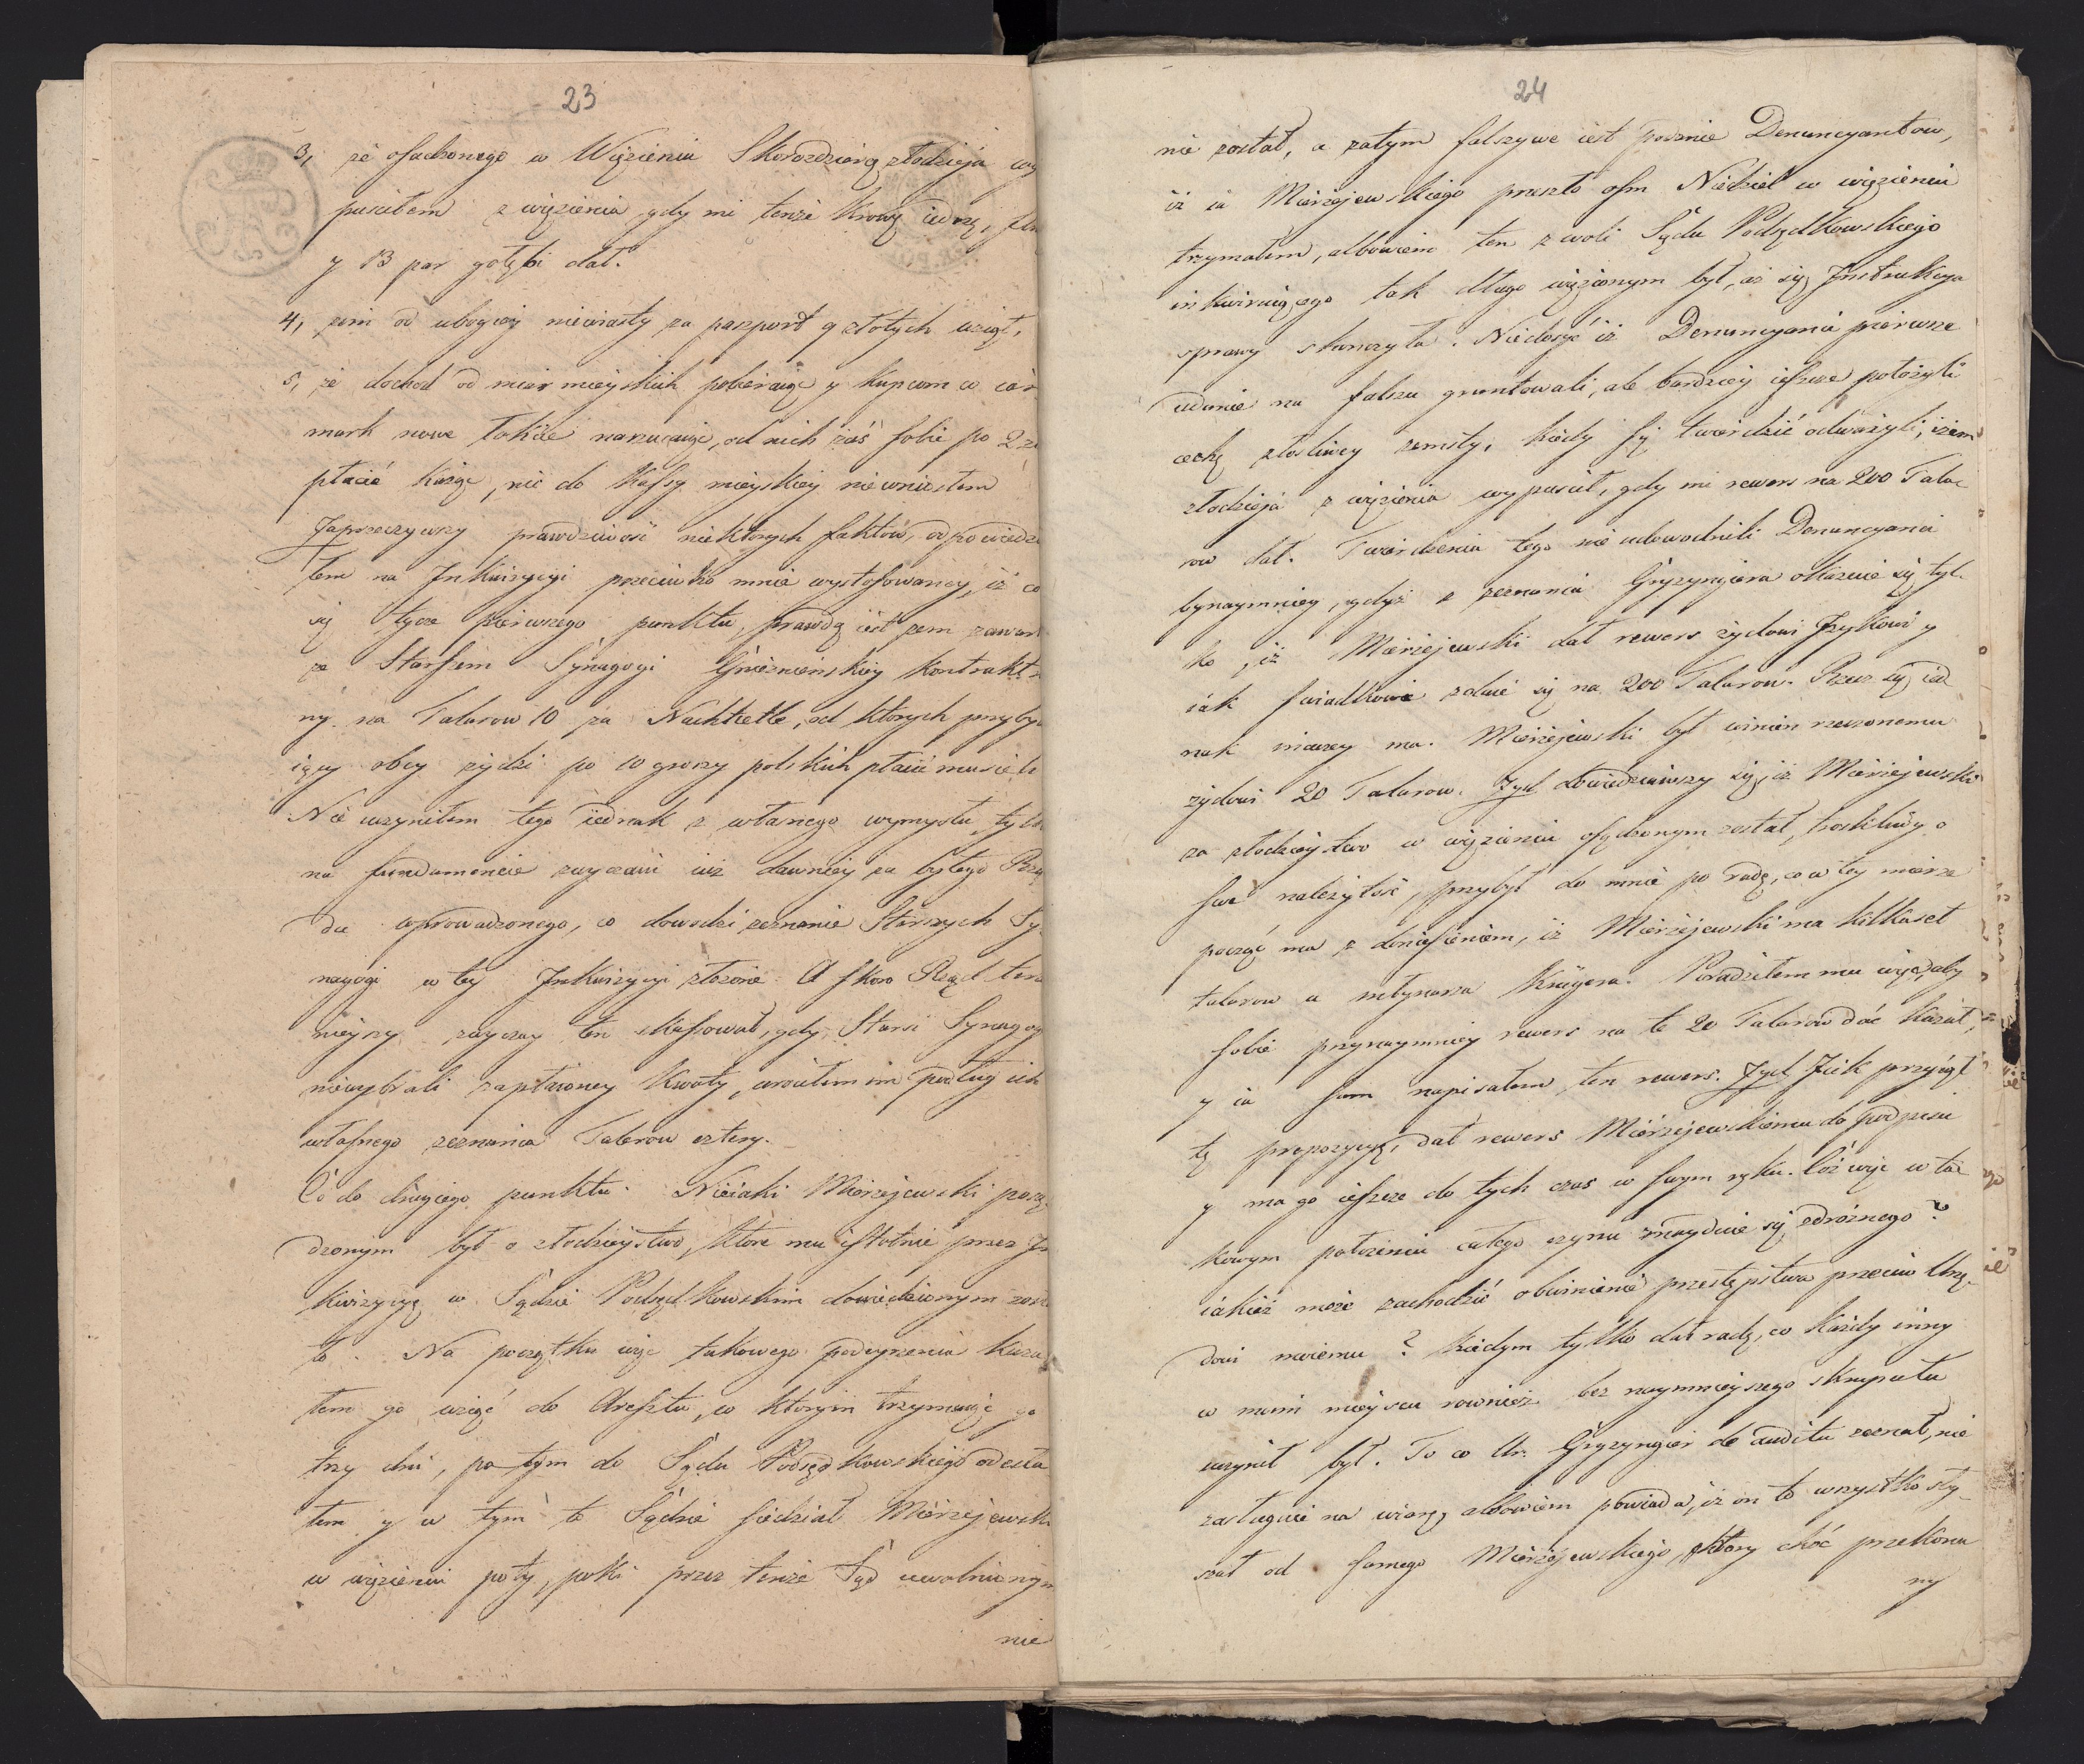 23
3, że osadzonego w Więzieniu Skorozdziorę złodzieja wy
pusciłem z więzienia, gdy mi tenże krowę iedną,
y 13 par gołębi dał.
4, żem od ubogiey niewiasty za paszport 9 złotych wziął,
5, że dochod od miar mieyskich pobieraiąc y kupcom co iar
mark nowe łokcie narzucaiąc, od nich zaś sobie po 2 zł
płacić każąc, nic do Kassy mieyskiey niewniosłem
Zaprzeczywszy prawdziwość niektorych faktów, odpowiedzia
łem na Inkwizycyi przeciwko mnie wystosowaney, iż co
się tycze pierwszego punktu, prawdą iest żem zawarł
ze Starszemi Synagogi Gnieznienskiey kontrakt
ny na Talarow 10 za Nachtzettle, od ktorych przyby
iący obcy żydzi po 10 groszy polskich płacić musieli
Nie uczyniłem tego iednak z własnego wymysłu, tylko
na fundamencie zwyczaiu iuż dawniey za byłego Rzą
du wprowadzonego, co dowodzi zeznanie Starszych Sy
nagogi w tey Inkwizycyi złożone. A skoro Rząd ten
nieyszy zwyczay ten skassował, gdy Starsi Synagogi
niewybrali zapłaconey kwoty, wrociłem im podług ich
własnego zeznania Talarow cztery.
Co do drugiego punktu. Nieiaki Mierzejewski posą
dzonym był o złodzieystwo, ktore mu istotnie przez In
kwizycyę w Sądzie Podsędkowskim dowiedzionym zosta
ło. Na początku więc takowego podeyrzenia kaza
łem go wziąć do Aresztu, w ktorym trzymaiąc go
trzy dni, po tym do Sądu Podsędkowskiego odesła
łem y w tym to Sądzie siedział Mierzejewski
w więzieniu poty, poki przez tenże Sąd uwolnionym
nie
24
nie został, a zatym fałszywe iest podanie Denuncyantow,
iż ia Mierzejewskiego przeszło osm Niedziel w więzieniu
trzymałem, albowiem ten z woli Sądu Podsędkowskiego
inkwiruiącego tak długo więzionym był, aż się Instrukcya
sprawy skonczyła. Niedosyć iż Denuncyanci pierwsze
udanie na fałszu gruntowali, ale bardziey ieszcze położyli
cechę złosliwey zemsty, kiedy się twierdzić odważyli, iżem
złodzieja z więzienia wypuscił, gdy mi rewers na 200 Tala
row dał. Twierdzenia tego nie udowodnili Denuncyanci
bynaymniey, gdyż z zeznania Gryzyngiera okazuie się tyl
ko, iż Mierzejewski dał rewers żydowi Izykowi y
iak swiadkowi zdaie się na 200 Talarow. Rzecz się ied
nak inaczey ma. Mierzejewski był winien rzeczonemu
żydowi 20 Talarow. Żyd dowiedziawszy się, iż Mierzejewski
za złodzieystwo w więzieniu osądzonym został, troskliwy o
swą należytość, przybył do mnie po radę, co w tey mierze
począć ma z doniesieniem, iż Mierzejewski ma kilkaset
talarow u młynarza Krügera. Poradziłem mu więc, aby
sobie przynaymniey rewers na te 20 Talarow dać kazał,
y ia sam napisałem ten rewers. Żyd Icik przyiął
tę propozycyą, dał rewers Mierzejewskiemu do podpisu
y ma go ieszcze do tych czas w swym ręku. Coż więc w ta
kowym położeniu całego czynu znayduie się zdrożnego?
iakież może zachodzić obwinienie przestępstwa przeciw Urzę
dowi moiemu? kiedym tylko dał radę, co każdy inny
w moim mieyscu rownież bez naymnieyszego skrupułu
uczynił był. To co Ur. Gryzyngier de auditu zeznał, nie
zasługuie na wiarę, albowiem powiada, iż on to wszystko sły
szał od samego Mierzejewskiego, ktory choć przekona
ny